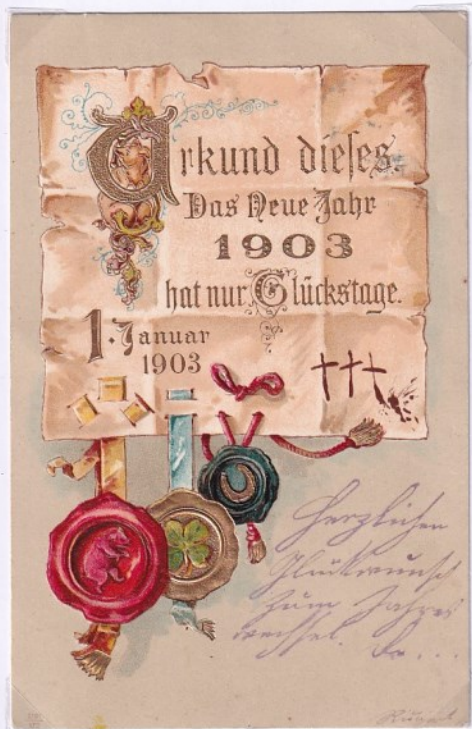 Urkund dieses
Das Neue Jahr
1903
hat nur Glückstage.
1. Januar
1903
†††
Herzlichen
Glückwunsch
zum Jahres
wechsel.